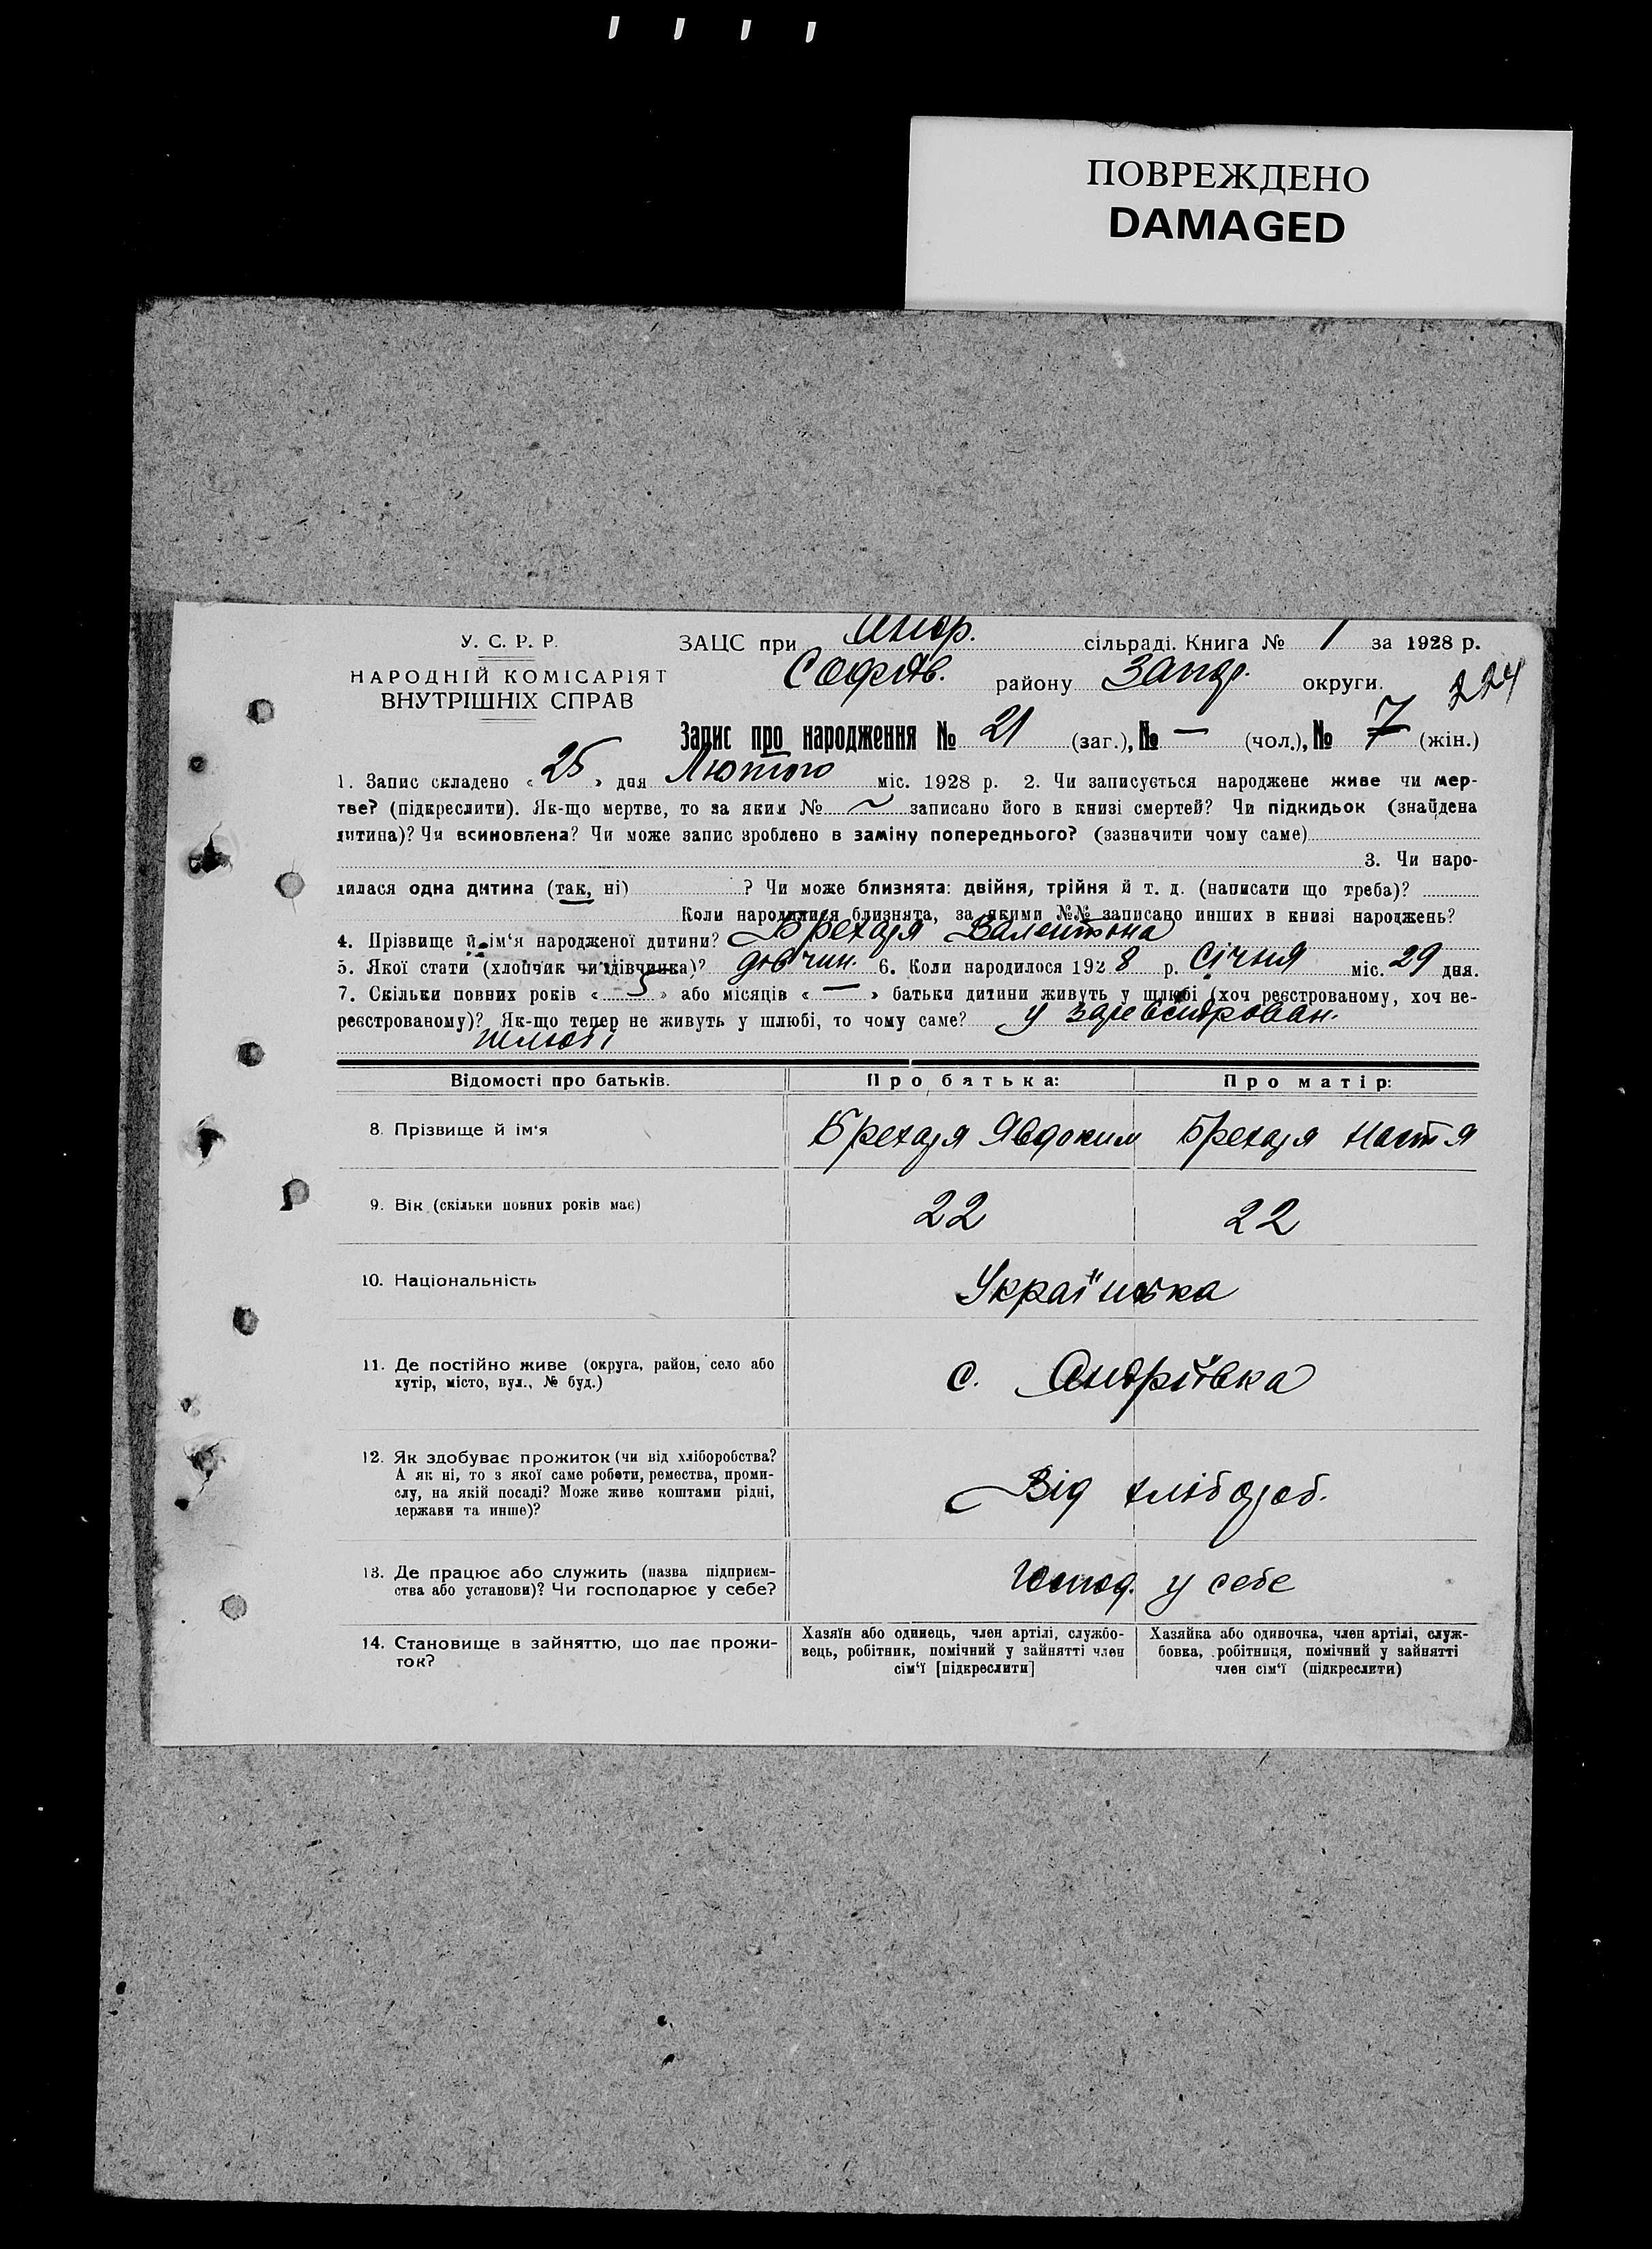 ПОВРЕЖДЕНО
DAMAGED
У. С. Р. Р.
НАРОДНІЙ КОМІСАРІЯТ
ВНУТРІШНІХ СПРАВ
ЗАЦС при Андр. сільраді. Книга № 1 за 1928 р.
Софіїв. району Запор. округи.
224
Запис про народження № 21 (заг.), № — (чол.), № 7 (жін.)
1. Запис складено « 25 » дня Лютого міс. 1928 р. 2. Чи записується народжене живе чи мер-
тве? (підкреслити). Як-що мертве, то за яким № ~ записано його в книзі смертей? Чи підкидьок (знайдена
дитина)? Чи всиновлена? Чи може запис зроблено в заміну попереднього? (зазначити чому саме)
3. Чи наро-
дилася одна дитина (так, ні) ? Чи може близнята: двійня, трійня й т. д. (написати що треба)?
Коли народилися близнята, за якими №№ записано инших в книзі народжень?
4. Прізвище й ім'я народженої дитини? Брехаря Валентона
5. Якої стати (хлопчик чи дівчинка)? дівчин. 6. Коли народилося 1928 р. Січня міс. 29 дня.
7. Скільки повних років « 5 » або місяців « — » батьки дитини живуть у шлюбі (хоч реєстрованому, хоч не-
реєстрованому)? Як-що тепер не живуть у шлюбі, то чому саме? у зареєстрован.
шлюбі
Відомості про батьків. Про батька: Про матір:
8. Прізвище й ім'я Брехаря Явдоким Брехаря Настя
9. Вік (скільки повних років має) 22 22
10. Національність Українська
11. Де постійно живе (округа, район, село або
хутір, місто, вул., № буд.) с. Андріївка
12. Як здобуває прожиток (чи від хліборобства?
А як ні, то з якої саме роботи, ремества, проми-
слу, на якій посаді? Може живе коштами рідні,
держави та инше)? Від хлібороб.
13. Де працює або служить (назва підприєм-
ства або установи)? Чи господарює у себе? Господ. у себе
14. Становище в зайняттю, що дає прожи-
ток?
Хазяїн або одинець, член артілі, службо-
вець, робітник, помічний у зайнятті член
сім'ї [підкреслити]
Хазяйка або одиночка, член артілі, служ-
бовка, робітниця, помічний у зайнятті
член сім'ї (підкреслити)